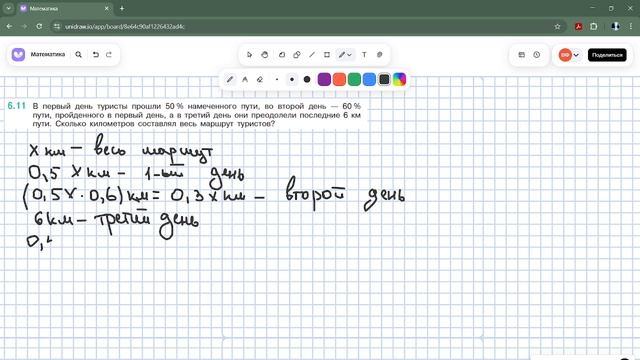 Математика
unidraw.io/app/board/8e64c90af1226432ad4c
Математика
Поделиться
6.11 В первый день туристы прошли 50 % намеченного пути, во второй день — 60 %
пути, пройденного в первый день, а в третий день они преодолели последние 6 км
пути. Сколько километров составлял весь маршрут туристов?
x км — весь маршут
0,5 x км — 1-ый день
(0,5x · 0,6) км = 0,3x км — второй день
6 км — третий день
0,